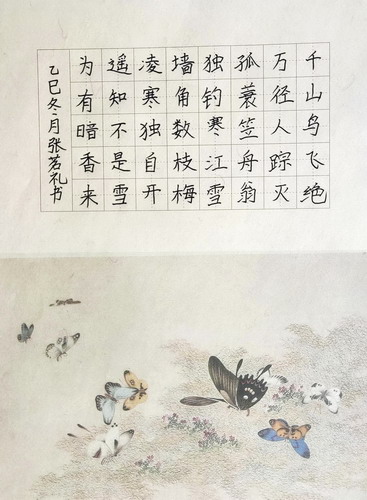 千山鸟飞绝
万径人踪灭
孤蓑笠舟翁
独钓寒江雪
墙角数枝梅
凌寒独自开
遥知不是雪
为有暗香来
乙巳冬月张茗礼书